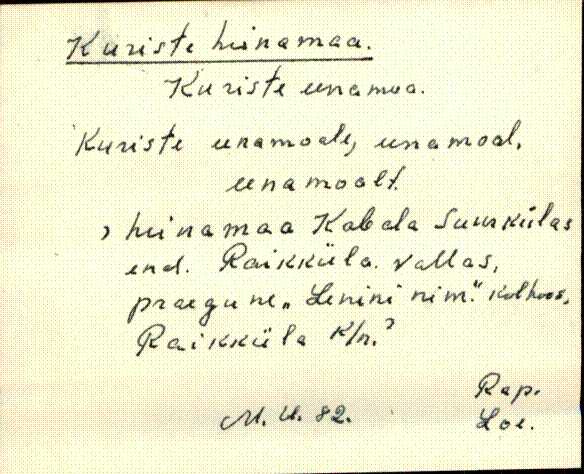 Kuriste heinamaa.
Kuriste einamoa.
Kuriste einamoale, einamoal,
einamoalt.
, heinamaa Kabala Suurkülas
end. Raikküla vallas,
praegune „Lenini nim." kolhoos,
Raikküla k/n.?
M. U. 82.
Rap.
Loe.